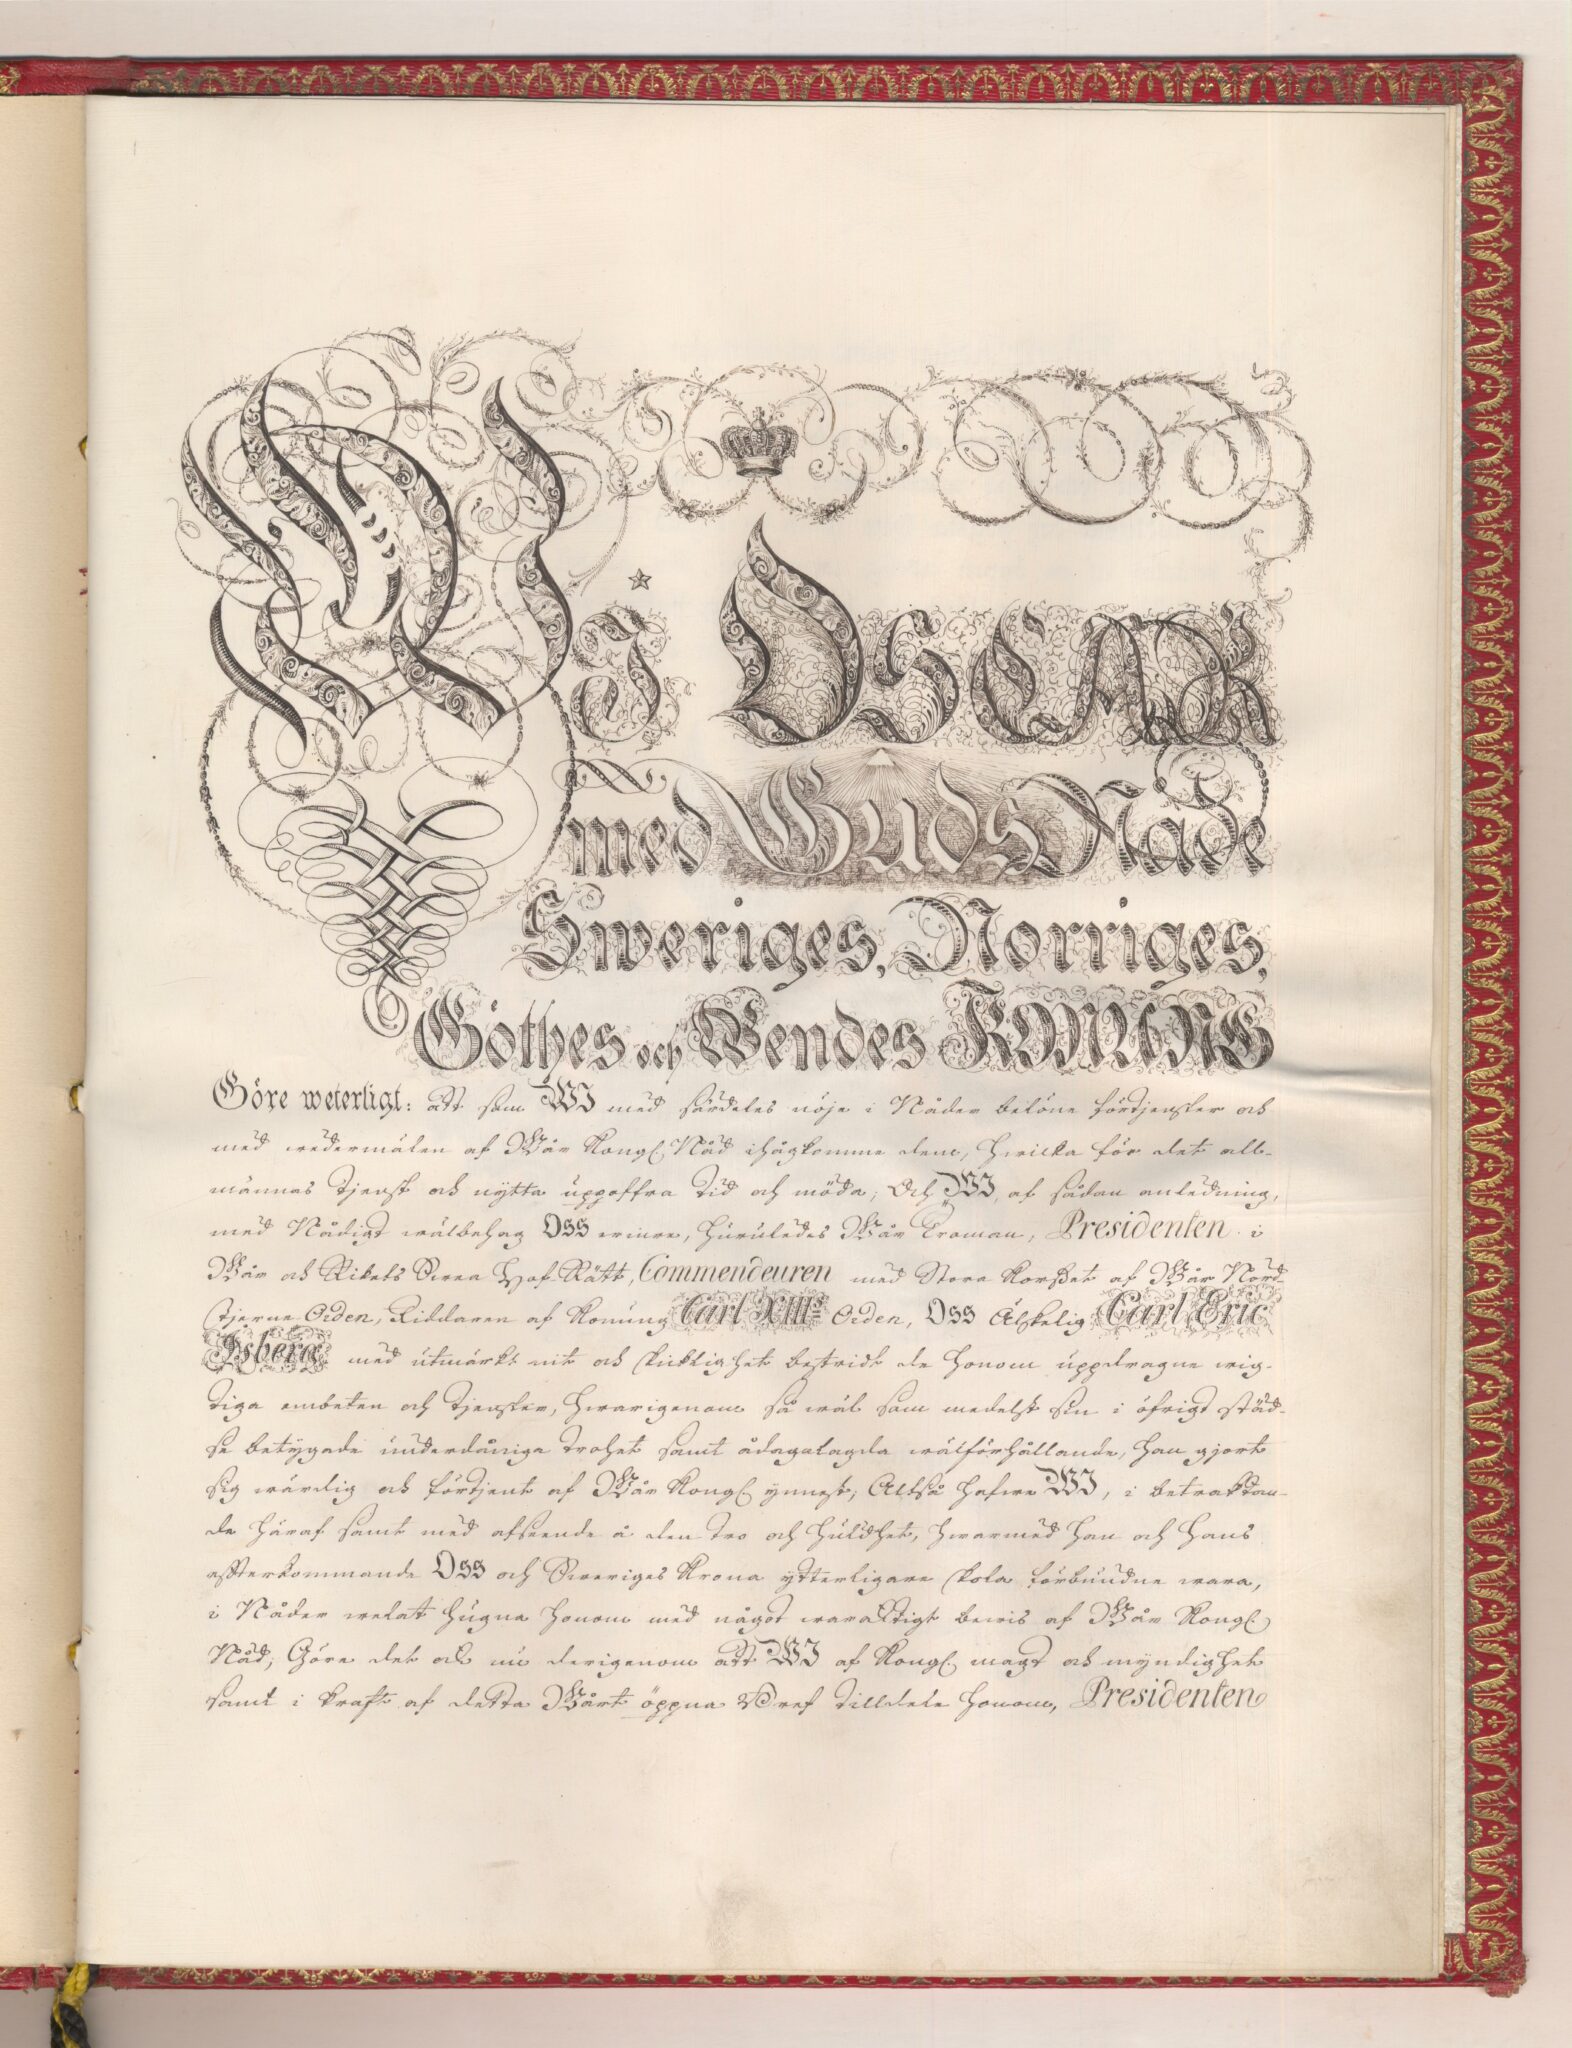 WJ OSCAR
med Guds Nåde
Sweriges, Norriges,
Göthes och Wendes KONUNG
Göre weterligt: att som WJ med särdeles nöje i Nåder belöne förtjenster och
med wedermälen af Wår Kongl. Nåd ihågkomme dem, hwilka för det all-
männas tjenst och nytta uppoffra tid och möda; Och WJ, af sådan anledning,
med Nådigt wälbehag OSS erinre, huruledes Wår Troman, Presidenten i
Wår och Rikets Swea Hof-Rätt, Commendeuren med Stora Korset af Wår Nord-
stjerne Orden, Riddaren af Konung Carl XIIIs Orden, OSS Älskelig Carl Eric
Isberg med utmärkt nit och skicklighet bestridt de honom uppdragne wig-
tiga embeten och tjenster, hwarigenom så wäl som medelst sin i öfrigt städ-
se betygade underdåniga trohet samt ådagalagda wälförhållande, han gjort
sig wärdig och förtjent af Wår Kongl. ynnest; Altså hafwe WJ, i betraktan-
de häraf samt med afseende å den tro och huldhet, hwarmed han och hans
efterkommande OSS och Sweriges Krona ytterligare skola förbundne wara,
i Nåder welat hugna honom med något waraktigt bewis af Wår Kongl.
Nåd; Göre det ock nu derigenom att WJ af Kongl. magt och myndighet
samt i kraft af detta Wårt öppna Bref tilldele honom, Presidenten